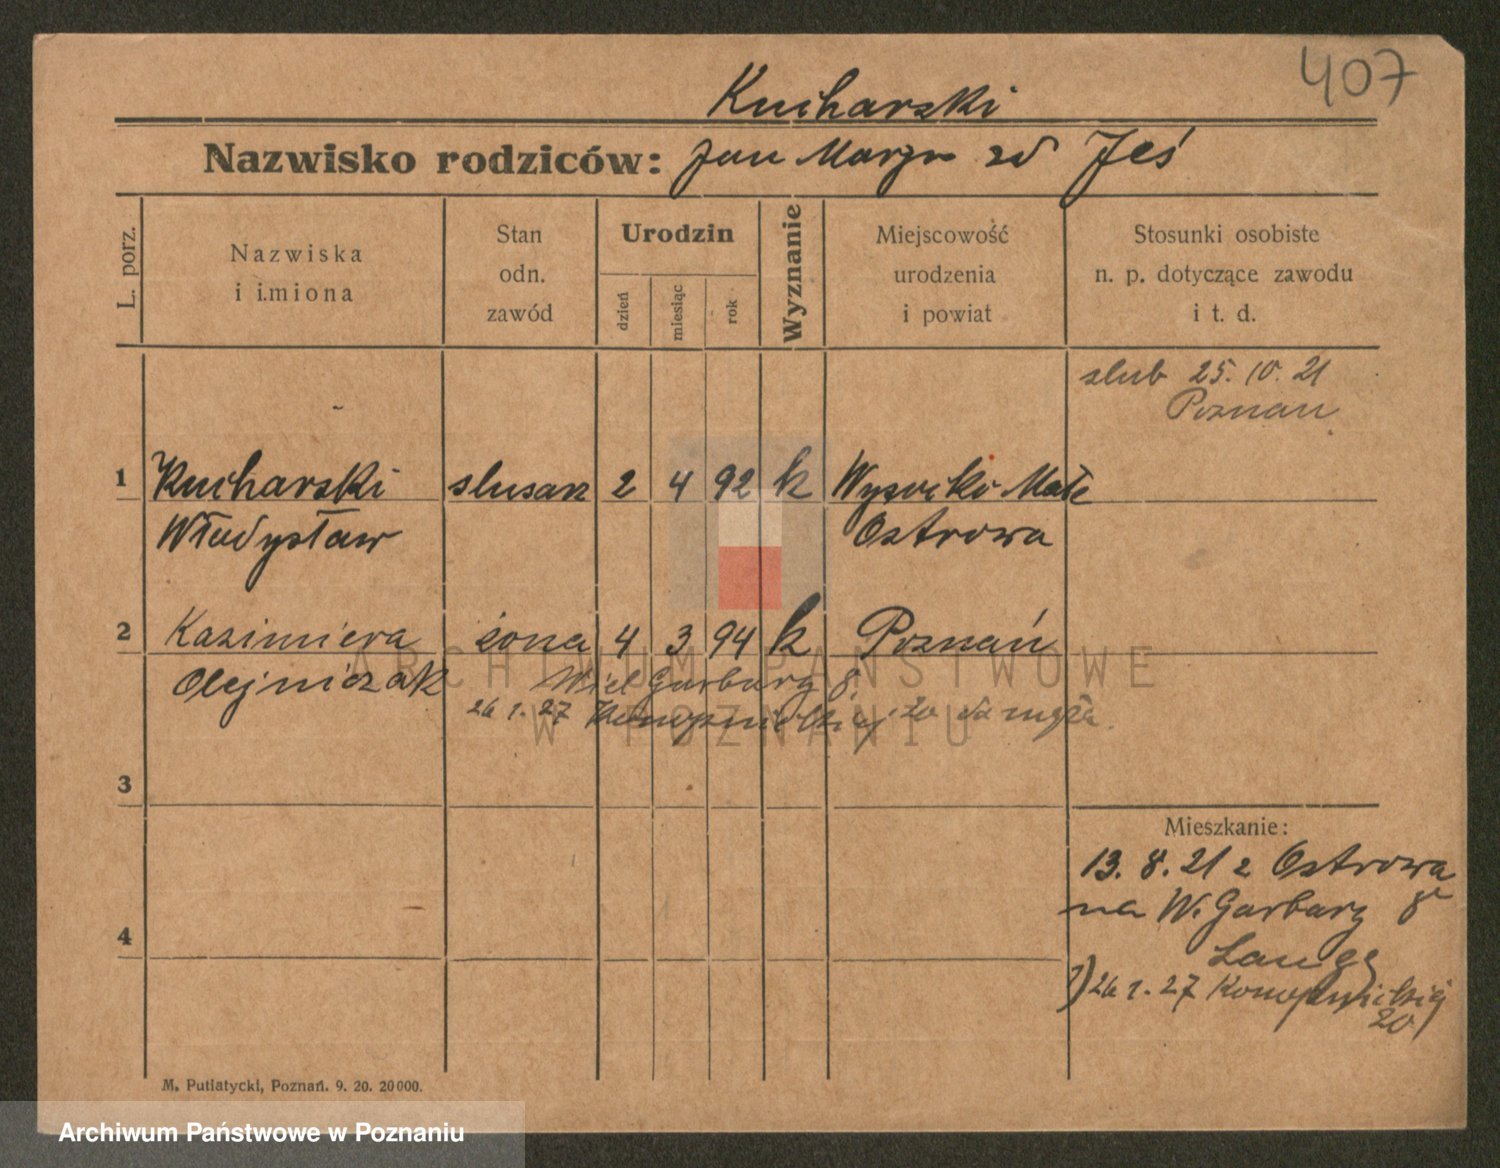 407
Kucharski
Nazwisko rodziców: Jan Marja zd Jeś
L. porz.
Nazwiska
i imiona
Stan
odn.
zawód
Urodzin
dzień
miesiąc
rok
Wyznanie
Miejscowość
urodzenia
i powiat
Stosunki osobiste
n. p. dotyczące zawodu
i t. d.
slub 25.10.21
Poznan
1 Kucharski slusarz 2 4 92 k Wysocko Małe
Władysław Ostrowa
2 Kazimiera żona 4 3 94 k Poznań
Olejniczak Wiel Garbary 8
26 1. 27 20 do męża
3
Mieszkanie:
13. 8. 21 z Ostrowa
na W. Garbary 8
4
Lange
1) 26 1. 27 20
M. Putiatycki, Poznań. 9. 20. 20000.
ARCHIWUM PAŃSTWOWE
W POZNANIU
Archiwum Państwowe w Poznaniu